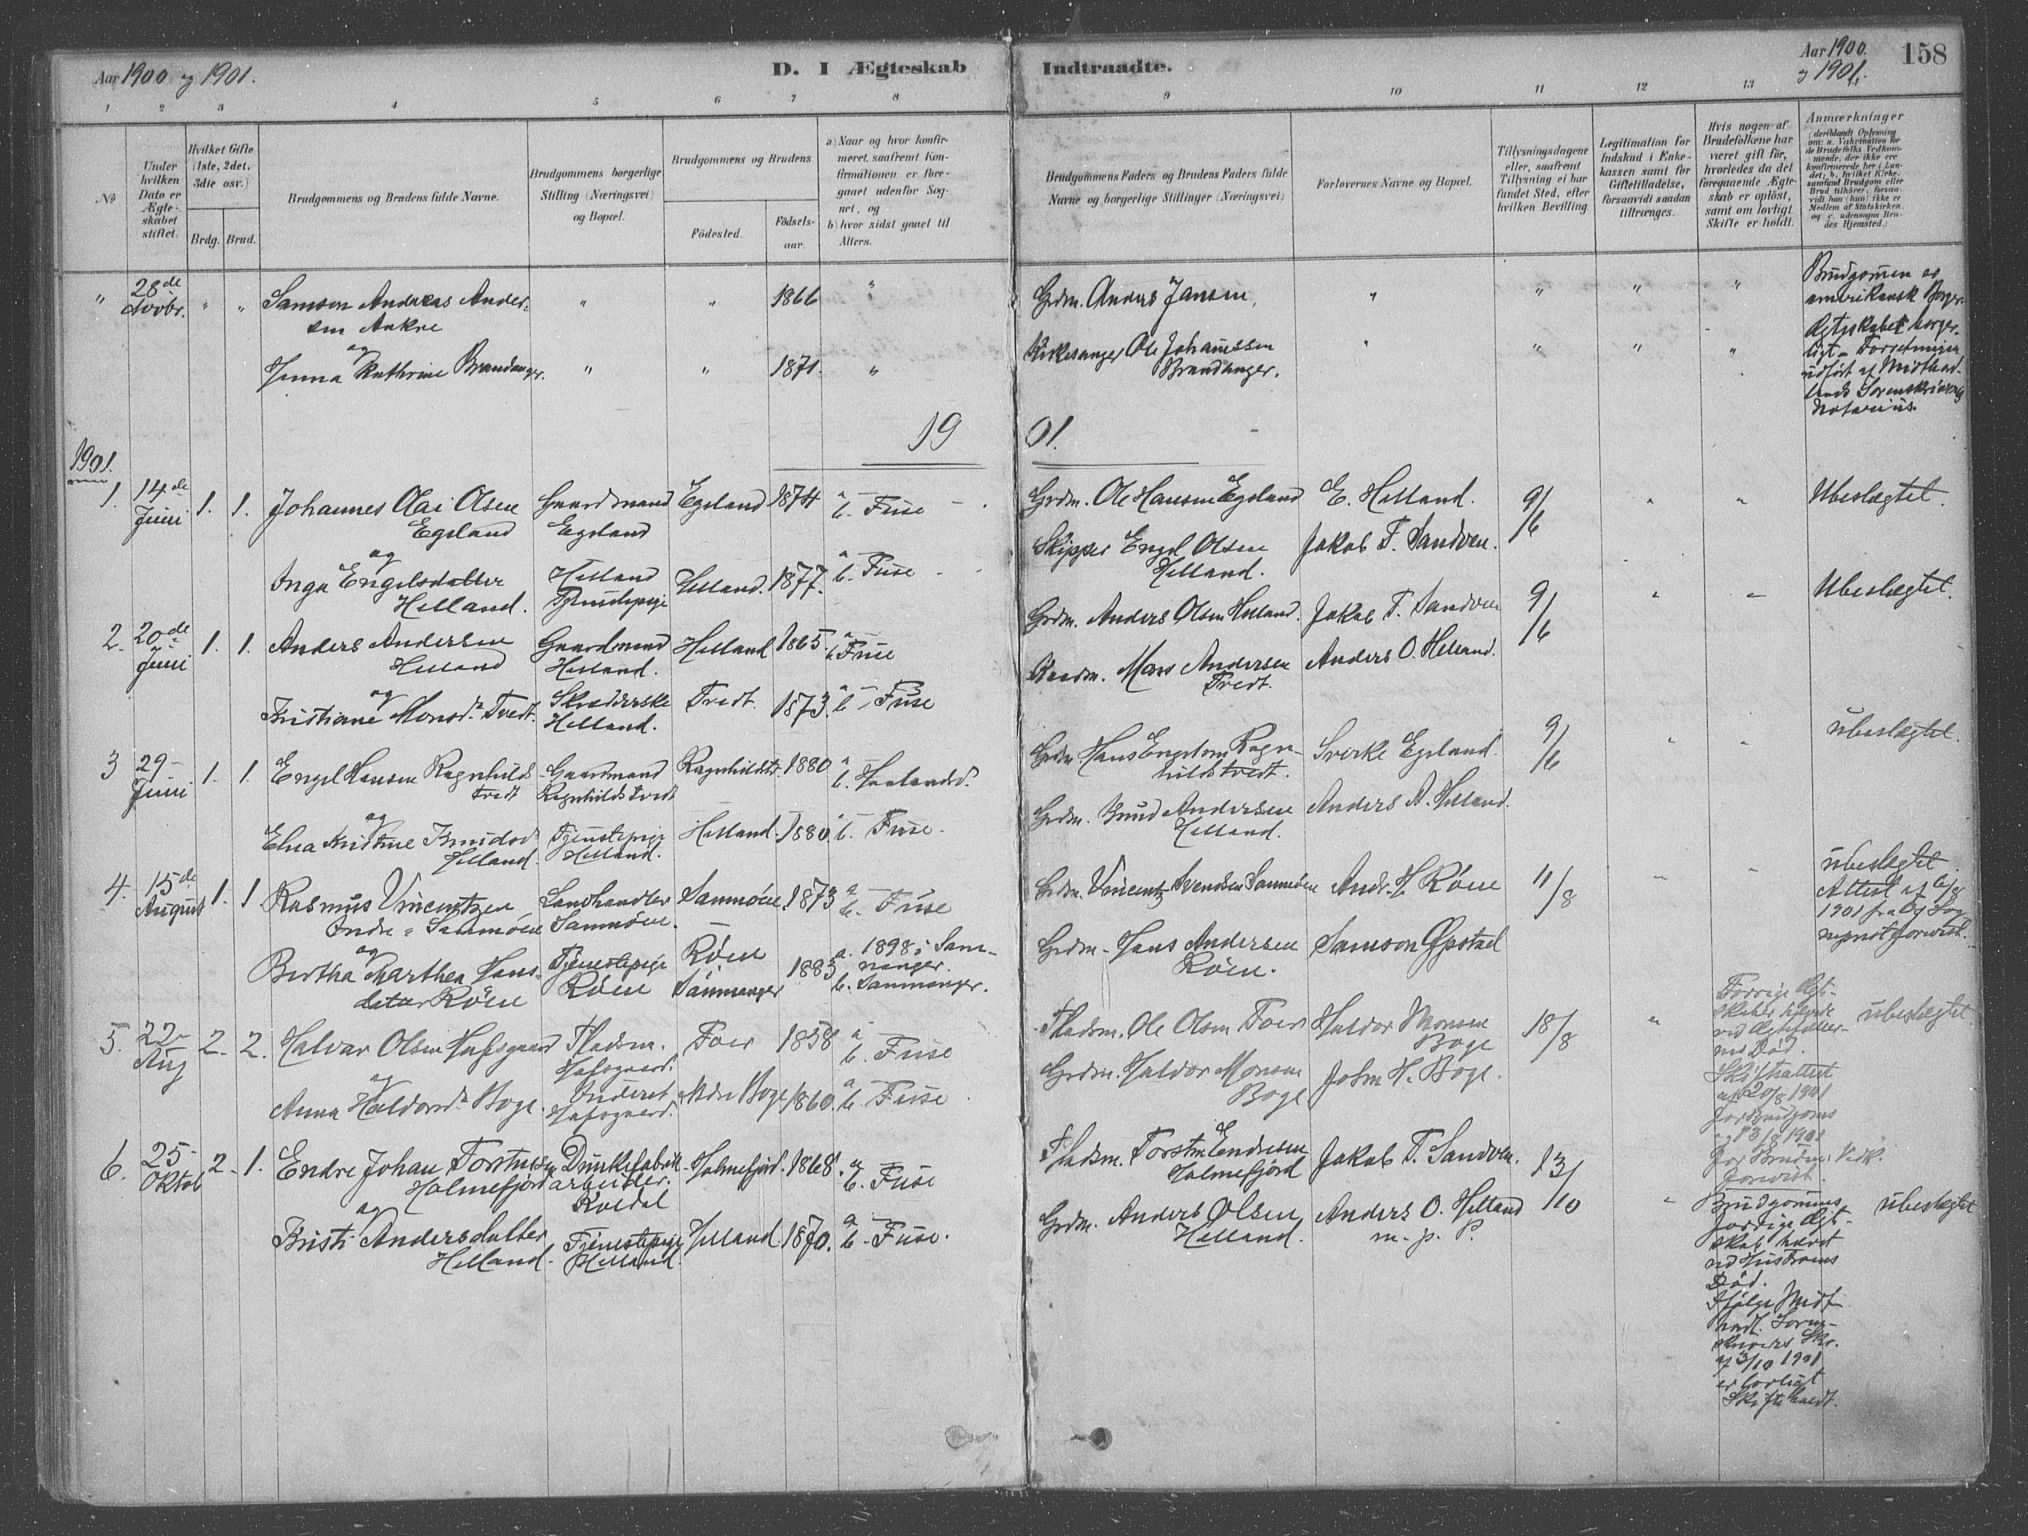 Aar 1900 og 1901.
D. I Ægteskab
Indtraadte.
Aar 1900.
og 1901.
158
1 2 3 4 5 6 7 8
9 10 11 12 13
No
Under hvilken Dato er Ægteskabet stiftet.
Hvilket Gifte (1ste, 2det, 3die osv.)
Brdg. Brud.
Brudgommens og Brudens fulde Navne.
Brudgommens borgerlige Stilling (Næringsvei) og Bopæl.
Brudgommens og Brudens
Fødested.
Fødselsaar.
a) Naar og hvor konfirmeret, saafremt Konfirmationen er foregaaet udenfor Sognet, og
b) hvor sidst gaaet til Alters.
Brudgommens Faders og Brudens Faders fulde Navne og borgerlige Stillinger (Næringsvei)
Forlovernes Navne og Bopæl.
Tillysningsdagene eller, saafremt Tillysning ei har fundet Sted, efter hvilken Bevilling.
Legitimation for Indskud i Enkekassen samt for Giftetilladelse, forsaavidt saadan tiltrænges.
Hvis nogen af Brudefolkene har været gift før, hvorledes da det foregaaende Ægteskab er opløst, samt om lovligt Skifte er holdt.
Anmærkninger
" 28de Novbr. " " Samson Andreas Andersen Ankre " " 1866 " Grdm. Anders Jansen, " " " "
Brudgomen er amerikansk Borger. Ægteskabet borgerligt. Forretningen udført af Midthordlands Sorenskriverog Notarius.
og
Jenna Kathrine Brandanger. " " 1871. " Kirkesanger Ole Johannessen Brandanger. " " " "
19 01.
1901.
1. 14de Juni 1. 1. Johannes Olai Olsen Egeland Gaardmand Egeland Egeland 1874 a b. - Fuse Grdm. Ole Hansen Egeland E. Helland. 9/6 " " Ubeslægtet.
og
Inga Engelsdatter Helland. Helland Tjenestepige Helland. 1877. a b. - Fuse Skipper Engel Olsen Helland. Jakob T. Sandven.
2. 20de Juni 1. 1. Anders Andersen Helland Gaardmand Helland. Helland 1865. a b. Fuse Grdm. Anders Olsen Helland. Jakob T. Sandven 9/6 " " Ubeslægtet.
og
Kristiane Monsd. Tvedt. Skrædderske Helland. Tvedt. 1873. a b - Fuse Grdm. Mons Andersen Tvedt. Anders O. Helland.
3 29- Juni 1. 1. Engel Hansen Ragnhildstvedt Gaardmand Ragnhildstvedt Ragnhildstv. 1880 a b. Haalandsd. Grdm Hans Engelsen Ragnhildstvedt. Sverke Egeland. 9/6 " " ubeslægtet.
og
Elna Kristine Knudsd. Helland. Tjenestepige Helland. Helland. 1880. a b. Fuse. Grdm. Knud Andersen Helland. Anders A. Helland.
4. 15de August 1. 1 Rasmus Vincentzen Indre Samnøen Landhandler Samnøen. Samnøen. 1873 a b. - Fuse Grdm. Vincentz Svendsen Samnøen Andr. H. Røen 11/8 " " ubeslægtet
Attest af 6/8 1901 fra Sognepræst forevist.
og
Bertha Marthea Hansdatter Røen Tjenestepige Røen Røen Samnanger 1883 a. 1898 i Samnanger. b. Samnanger. Grdm. Hans Andersen Røen. Samson Øpstad
5. 22- Aug 2. 2. Halvar Olsen Hafsgaard Pladsm. Hafsgaard. Foer 1858 a b. Fuse Pladsm. Ole Olsen Foer Haldor Monsen Boge 18/8 " ubeslægtet
Forrige Ægteskaber hævede ved Ægtefællernes Død. Skifteattest af 20/8 1901 for Brudgoms og 13/8 1901 for Brudens Vedk. forevist.
og
Anna Haldorsd. Boge. Inderst Hafsgaard. Ndre Boge 1860. a b. Fuse Grdm. Haldor Monsen Boge John H. Boge.
6. 25- Oktob 2. 1. Endre Johan Torstensen Holmefjord Dunkefabrikarbeider. Koldal Holmefjord. 1868. a b. Fuse Pladsm. Torsten Endresen Holmefjord Jakob T. Sandven. 13/10 " ubeslægtet
Brudgomens forrige Ægteskab hævet ved Hustruens Død. Ifølge Midthordl. Sorenskrivers Skr. af 3/10 1901 er lovligt Skifte holdt.
og
Kristi Andersdatter Helland. Tjenestepige Helland. Helland 1870. a b. Fuse. Grdm. Anders Olsen Helland. Anders O. Helland m. p. P.